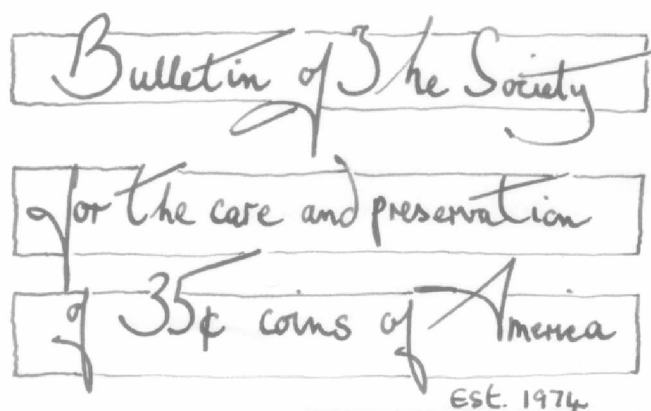 Bulletin of The Society
for the care and preservation
of 35¢ coins of America
Est. 1974